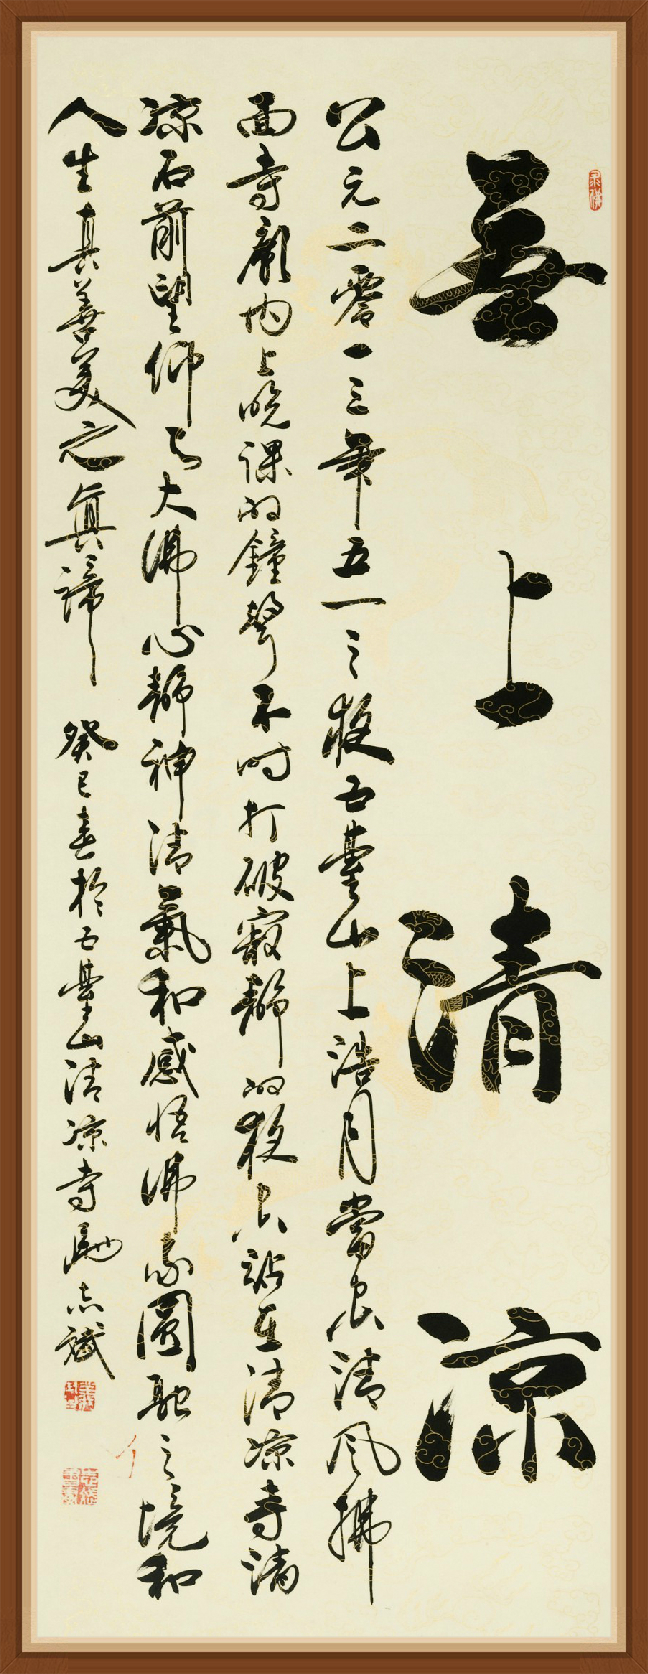 無上清凉
公元二零一三年五一之夜五臺山上浩月當空清風拂
面寺廟内上晚课的鐘聲不時打破寂靜的夜空站在清凉寺清
凉石前望仰了大佛心靜神清氣和感悟佛家圓融之境和
人生真善美之真諦 癸巳春於五臺山清凉寺志斌